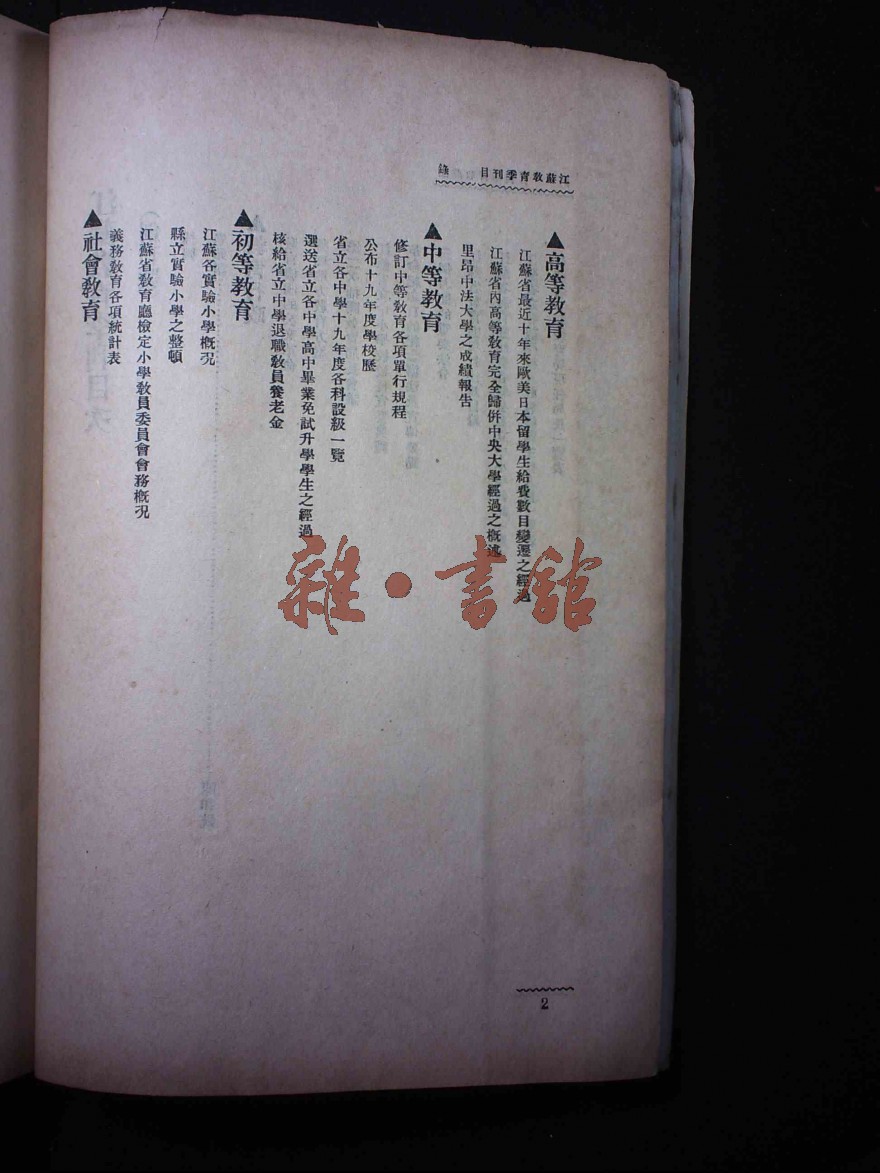 江蘇教育季刊目錄
▲高等教育
江蘇省最近十年來歐美日本留學生給費數目變遷之經過
江蘇省內高等教育完全歸併中央大學經過之概述
里昂中法大學之成績報告
▲中等教育
修訂中等教育各項單行規程
公布十九年度學校歷
省立各中學十九年度各科設級一覽
選送省立各中學高中畢業免試升學學生之經過
核給省立中學退職教員養老金
▲初等教育
江蘇各實驗小學概況
縣立實驗小學之整頓
江蘇省教育廳檢定小學教員委員會會務概況
義務教育各項統計表
▲社會教育
2
雜·書館